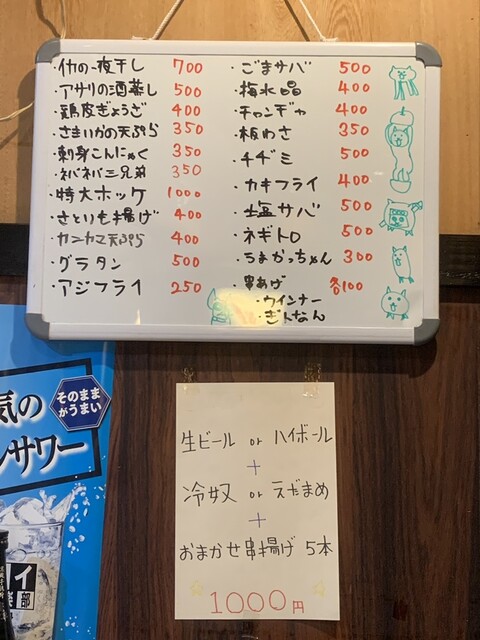 ・イカの一夜干し 700
・アサリの酒蒸し 500
・鶏皮ぎょうざ 400
・さきいかの天ぷら 350
・刺身こんにゃく 350
・ネバネバ三兄弟 350
・特大ホッケ 1000
・さといも揚げ 400
・カニカマ天ぷら 400
・グラタン 500
・アジフライ 250
・ごまサバ 500
・梅水晶 400
・チャンヂャ 400
・板わさ 350
・チヂミ 500
・カキフライ 400
・塩サバ 500
・ネギトロ 500
・うまかっちゃん 300
・串あげ 各100
・ウインナー
・ぎんなん
気の
そのまま
がうまい
ンサワー
生ビール or ハイボール
+
冷奴 or えだまめ
+
おまかせ串揚げ 5本
1000円